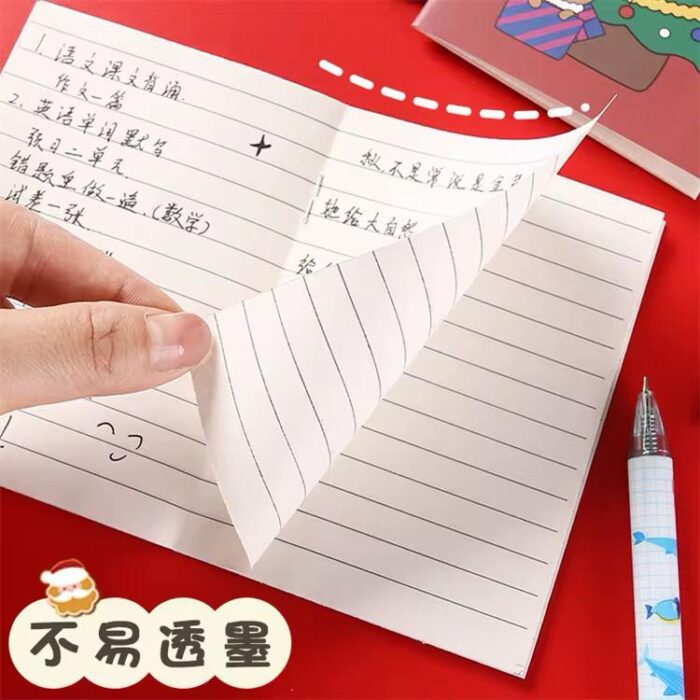 1. 语文课文背诵.
作文一篇
2. 英语单词默写
预习二单元.
错题重做一遍.(数学)
试卷一张.
不是学说是全
她给大自然
给
不易透墨